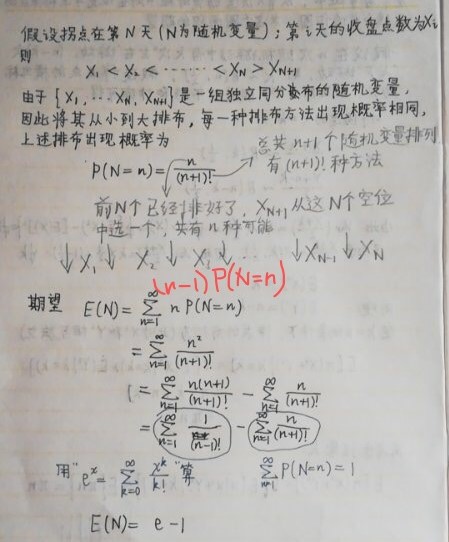 假设拐点在第N天(N为随机变量);第i天的收盘点数为Xi
则
X₁ < X₂ < ······ < X_N > X_{N+1}
由于{X₁, ... X_N, X_{N+1}}是一组独立同分散布的随机变量,
因此将其从小到大排布,每一种排布方法出现概率相同,
上述排布出现概率为
总共n+1个随机变量排列
P(N=n) = n/(n+1)!
有(n+1)!种方法
前N个已经排好了,X_{N+1}从这N个空位
中选一个,共有n种可能
↓X₁ ↓X₂ ↓X₃ ↓ ... ↓X_{N-1} ↓X_N
(n-1)P(N=n)
期望 E(N) = ∑_{n=1}^∞ n P(N=n)
= ∑_{n=1}^∞ n²/(n+1)!
= ∑_{n=1}^∞ n(n+1)/(n+1)! - ∑_{n=1}^∞ n/(n+1)!
= ∑_{n=1}^∞ 1/(n-1)! - ∑_{n=1}^∞ n/(n+1)!
用"eˣ = ∑_{k=0}^∞ xᵏ/k!"算 ∑_{n=1}^∞ P(N=n) = 1
E(N) = e-1